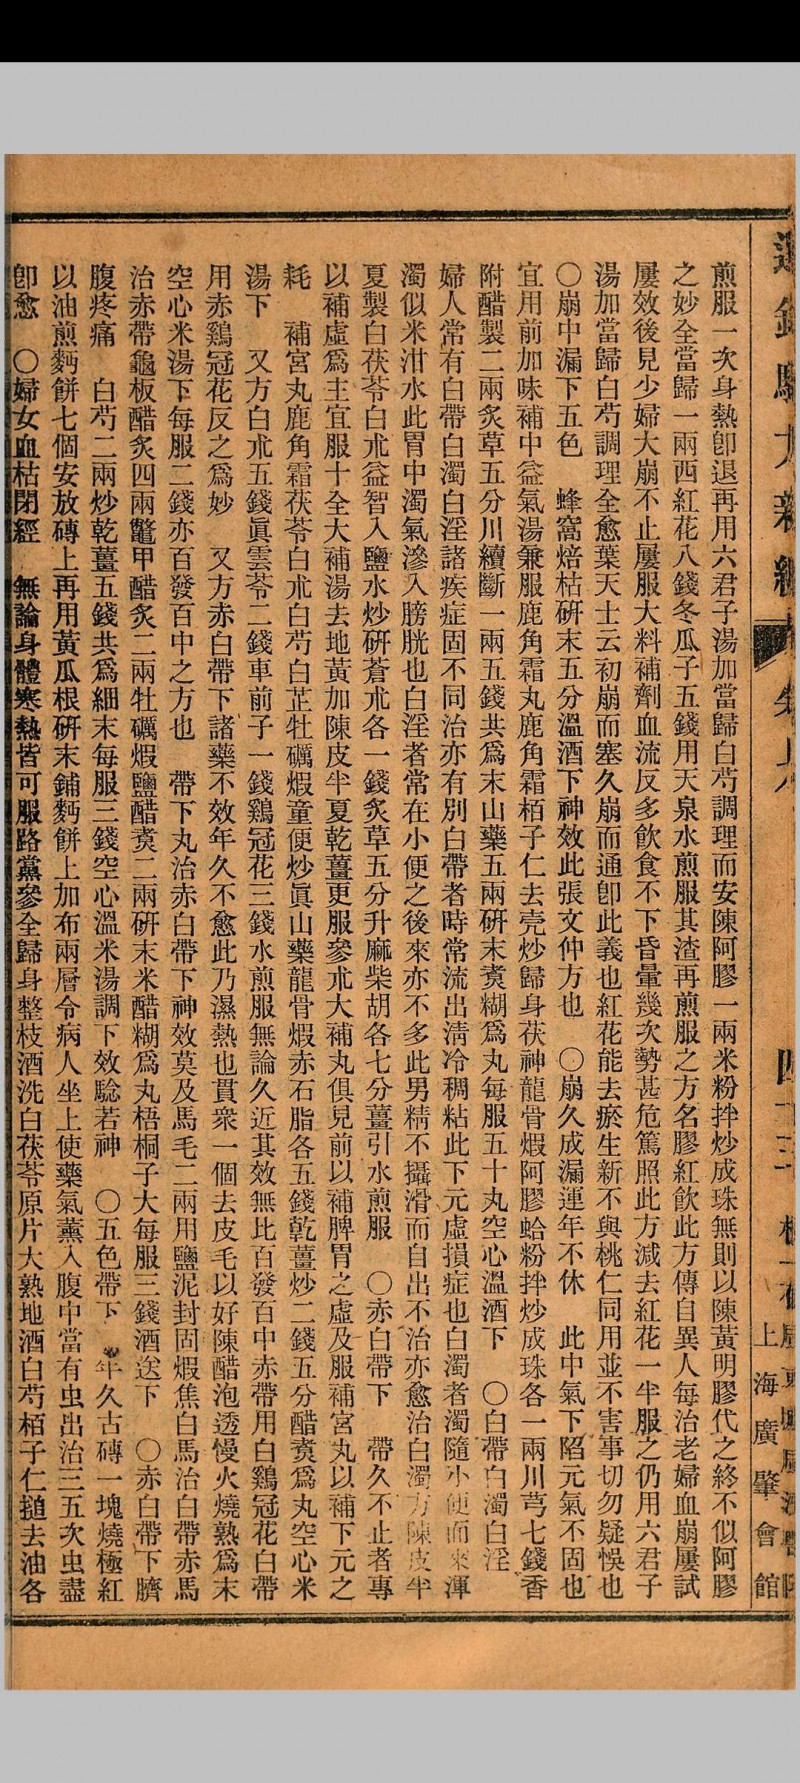 煎服一次身熱卽退再用六君子湯加當歸白芍調理而安陳阿膠一兩米粉拌炒成珠無則以陳黃明膠代之終不似阿膠
之妙全當歸一兩西紅花八錢冬瓜子五錢用天泉水煎服其渣再煎服之方名膠紅飲此方傳自異人每治老婦血崩屢試
屢效後見少婦大崩不止屢服大料補劑血流反多飲食不下昏暈幾次勢甚危篤照此方減去紅花一半服之仍用六君子
湯加當歸白芍調理全愈葉天士云初崩而塞久崩而通卽此義也紅花能去瘀生新不與桃仁同用並不害事切勿疑悞也
〇崩中漏下五色　蜂窩焙枯硏末五分溫酒下神效此張文仲方也　〇崩久成漏連年不休　此中氣下陷元氣不固也
宜用前加味補中益氣湯兼服鹿角霜丸鹿角霜栢子仁去壳炒歸身茯神龍骨煆阿膠蛤粉拌炒成珠各一兩川芎七錢香
附醋製二兩炙草五分川續斷一兩五錢共爲末山藥五兩硏末煑糊爲丸每服五十丸空心溫酒下　〇白帶白濁白淫
婦人常有白帶白濁白淫諸疾症固不同治亦有別白帶者時常流出淸冷稠粘此下元虛損症也白濁者濁隨小便而來渾
濁似米泔水此胃中濁氣滲入膀胱也白淫者常在小便之後來亦不多此男精不攝滑而自出不治亦愈治白濁方陳皮半
夏製白茯苓白朮益智入鹽水炒硏蒼朮各一錢炙草五分升麻柴胡各七分薑引水煎服　〇赤白帶下　帶久不止者專
以補虛爲主宜服十全大補湯去地黃加陳皮半夏乾薑更服參朮大補丸俱見前以補脾胃之虛及服補宮丸以補下元之
耗　補宮丸鹿角霜茯苓白朮白芍白芷牡礪煆童便炒眞山藥龍骨煆赤石脂各五錢乾薑炒二錢五分醋煑爲丸空心米
湯下　又方白朮五錢眞雲苓二錢車前子一錢鷄冠花三錢水煎服無論久近其效無比百發百中赤帶用白鷄冠花白帶
用赤鷄冠花反之爲妙　又方赤白帶下諸藥不效年久不愈此乃濕熱也貫衆一個去皮毛以好陳醋泡透慢火燒熟爲末
空心米湯下每服二錢亦百發百中之方也　帶下丸治赤白帶下神效莫及馬毛二兩用鹽泥封固煆焦白馬治白帶赤馬
治赤帶龜板醋炙四兩鼈甲醋炙二兩牡礪煆鹽醋煑二兩硏末米醋糊爲丸梧桐子大每服三錢酒送下　〇赤白帶下臍
腹疼痛　白芍二兩炒乾薑五錢共爲細末每服三錢空心溫米湯調下效騐若神　〇五色帶下　年久古磚一塊燒極紅
以油煎麪餅七個安放磚上再用黃瓜根硏末鋪麪餅上加布兩層令病人坐上使藥氣薰入腹中當有虫出治三五次虫盡
卽愈　〇婦女血枯閉經　無論身體寒熱皆可服路黨參全歸身整枝酒洗白茯苓原片大熟地酒白芍栢子仁搥去油各
上海廣肇會館